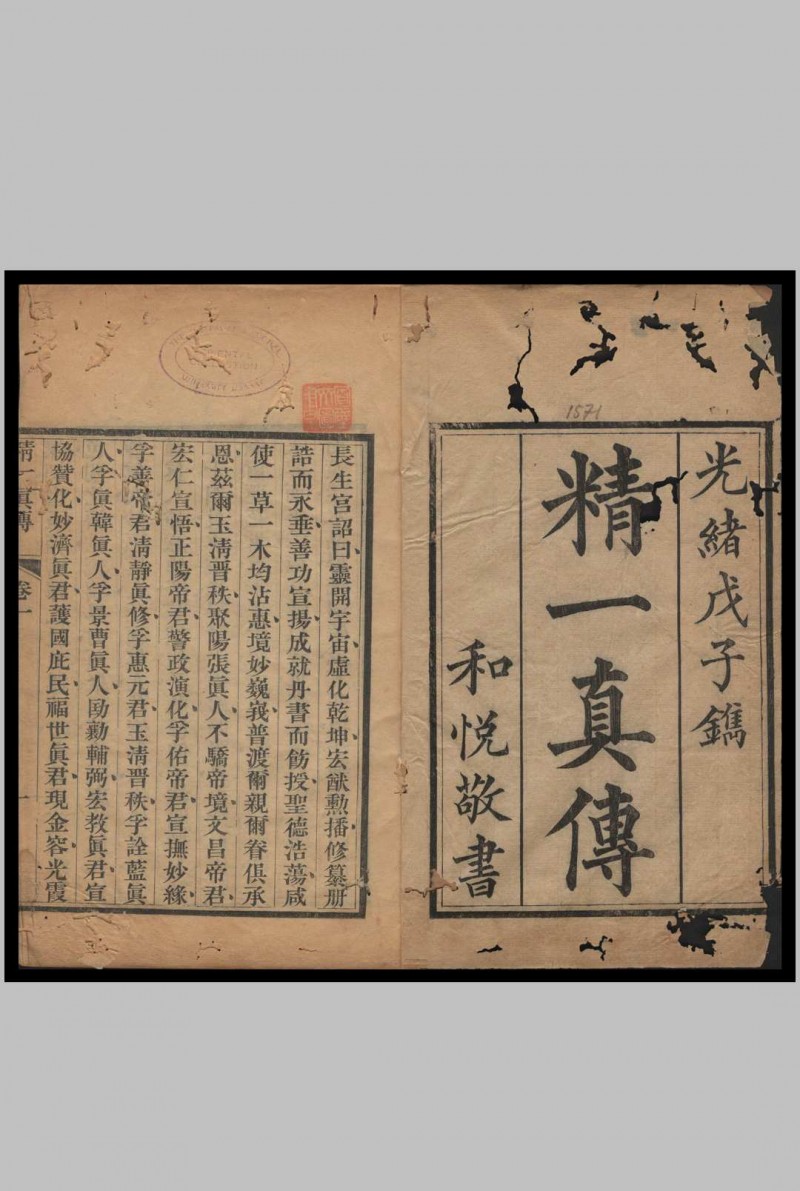 光緒戊子鐫
精一真傳
和悅敬書
1571
長生宮詔曰靈開宇宙虛化乾坤宏猷勲播修纂册
誥而永垂善功宣揚成就丹書而飭授聖德浩蕩咸
使一草一木均沾惠境妙巍峩普渡爾親爾眷俱承
恩茲爾玉淸晋秩聚陽張眞人不驕帝境文昌帝君
宏仁宣悟正陽帝君警政演化孚佑帝君宣撫妙緣
孚善帝君淸靜眞修孚惠元君玉淸晋秩孚詮藍眞
人孚眞韓眞人孚景曹眞人勛勷輔弼宏教眞君宣
協贊化妙濟眞君護國庇民福世眞君現金容光霞
精一眞傳 卷一 一